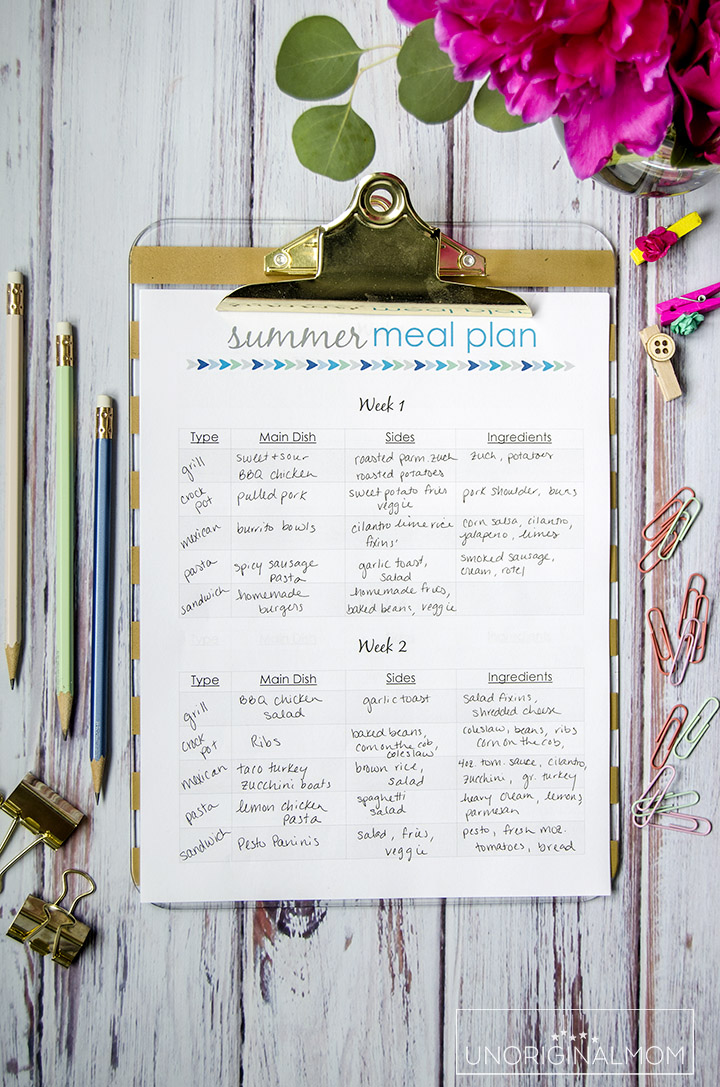 summer meal plan
Week 1
Type Main Dish Sides Ingredients
grill sweet + sour BBQ chicken roasted parm. zuch roasted potatoes zuch, potatoes
crock pot pulled pork sweet potato fries veggie pork shoulder, buns
mexican burrito bowls cilantro lime rice fixins' corn salsa, cilantro, jalapeno, limes
pasta spicy sausage pasta garlic toast, salad smoked sausage, cream, rotel
sandwich homemade burgers homemade fries, baked beans, veggie
Week 2
Type Main Dish Sides Ingredients
grill BBQ chicken salad garlic toast salad fixins, shredded cheese
crock pot Ribs baked beans, corn on the cob, coleslaw coleslaw, beans, ribs corn on the cob,
mexican taco turkey zucchini boats brown rice, salad 4oz. tom. sauce, cilantro, zucchini, gr. turkey
pasta lemon chicken pasta spaghetti salad heavy cream, lemons, parmesan
sandwich Pesto Paninis salad, fries, veggie pesto, fresh moz. tomatoes, bread
UNORIGINALMOM